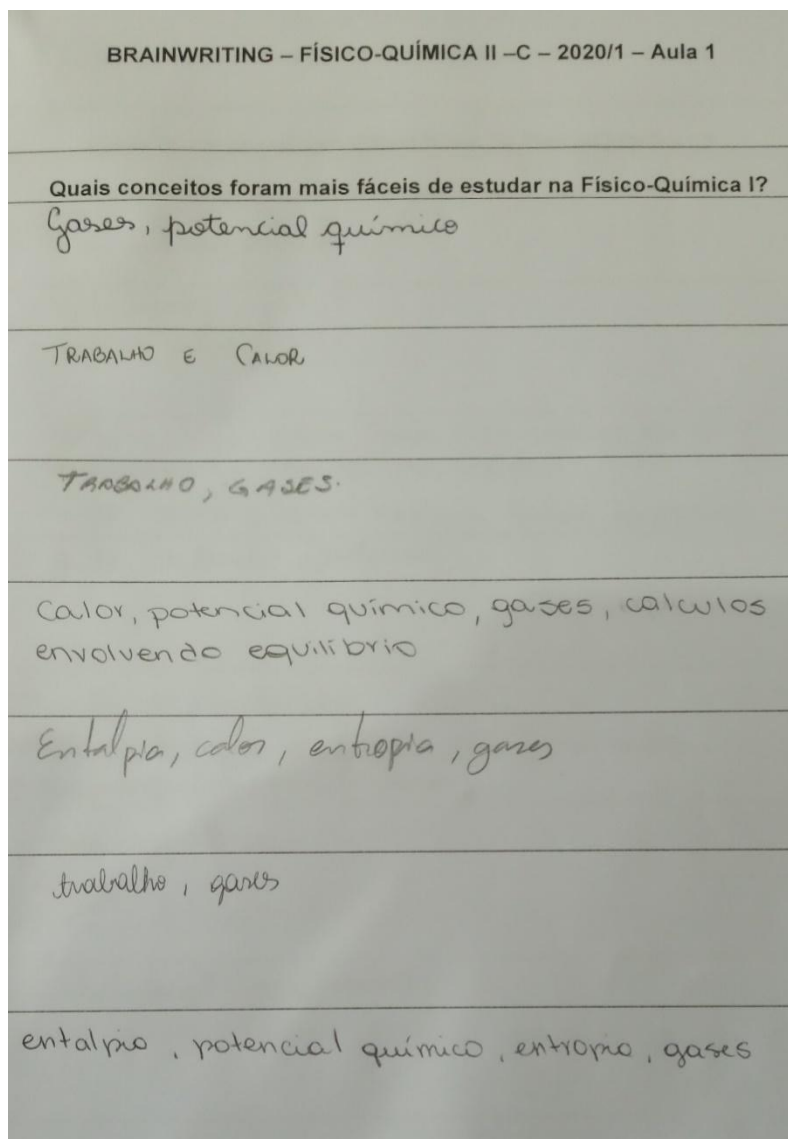 BRAINWRITING – FÍSICO-QUÍMICA II –C – 2020/1 – Aula 1
Quais conceitos foram mais fáceis de estudar na Físico-Química I?
Gases, potencial químico
TRABALHO E CALOR
TRABALHO, GASES.
Calor, potencial químico, gases, calculos
envolvendo equilíbrio
Entalpia, calor, entropia, gases
trabalho, gases
entalpia, potencial químico, entropia, gases